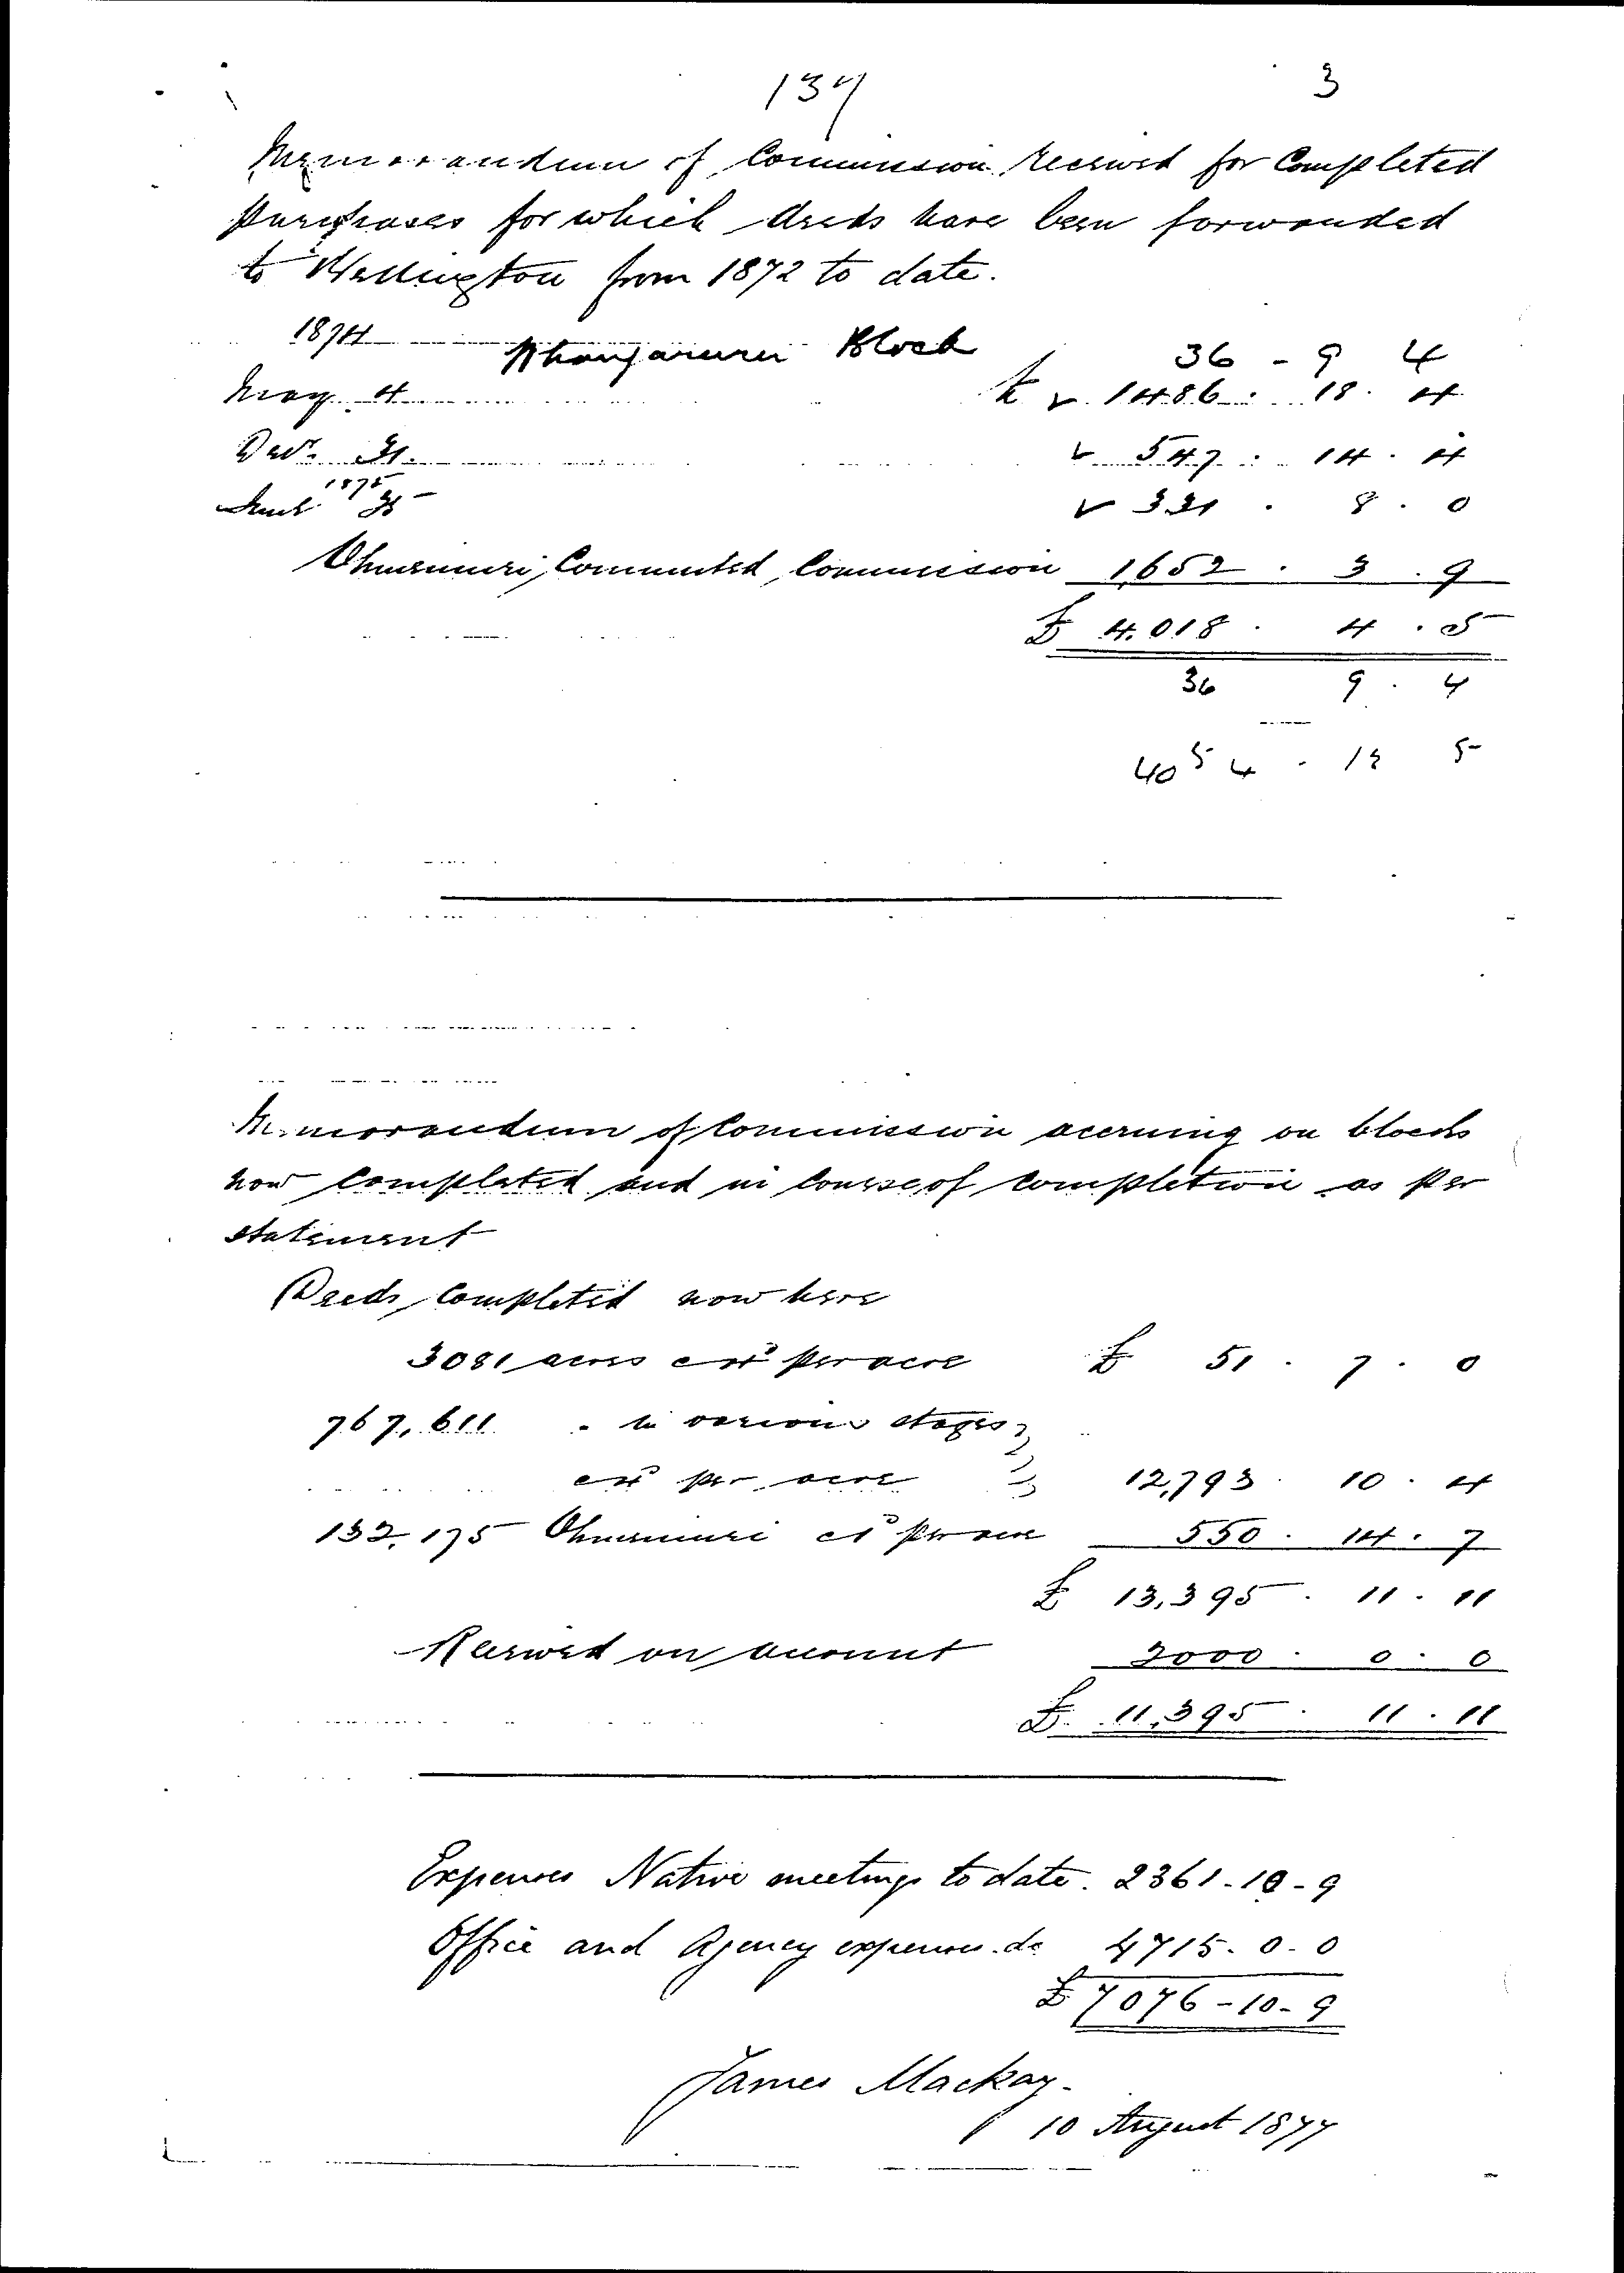 137 3
Memorandum of Commission received for Completed
Purchases for which deeds have been forwarded
to Wellington from 1872 to date.
1874 Whangaruru Block 36 - 9 4
May 4 £ 1486 : 18 . 4
Decr. 31. 547 : 14 . 4
1875
331 . 8 . 0
Ohinemuri, Commuted, Commission 1652 . 3 . 9
£ 4.018 . 4 . 5
36 9 . 4
4054 . 13 5
Memorandum of Commission accruing on blocks
now completed and in Course of Completion as per
statement
Deeds, Completed now here
3081 acres @ 4d per acre £ 51 . 7 . 0
767,611 " in various stages
@ 4d per acre 12,793 . 10 . 4
132,175 Ohinemuri @ 1d per acre 550 . 14 . 7
£ 13,395 . 11 . 11
Received on account 2000 . 0 . 0
£ 11,395 . 11 . 11
Expenses Native meetings to date. 2361-10-9
Office and Agency expenses. do 4715-0-0
£7076-10-9
James Mackay
10 August 1877